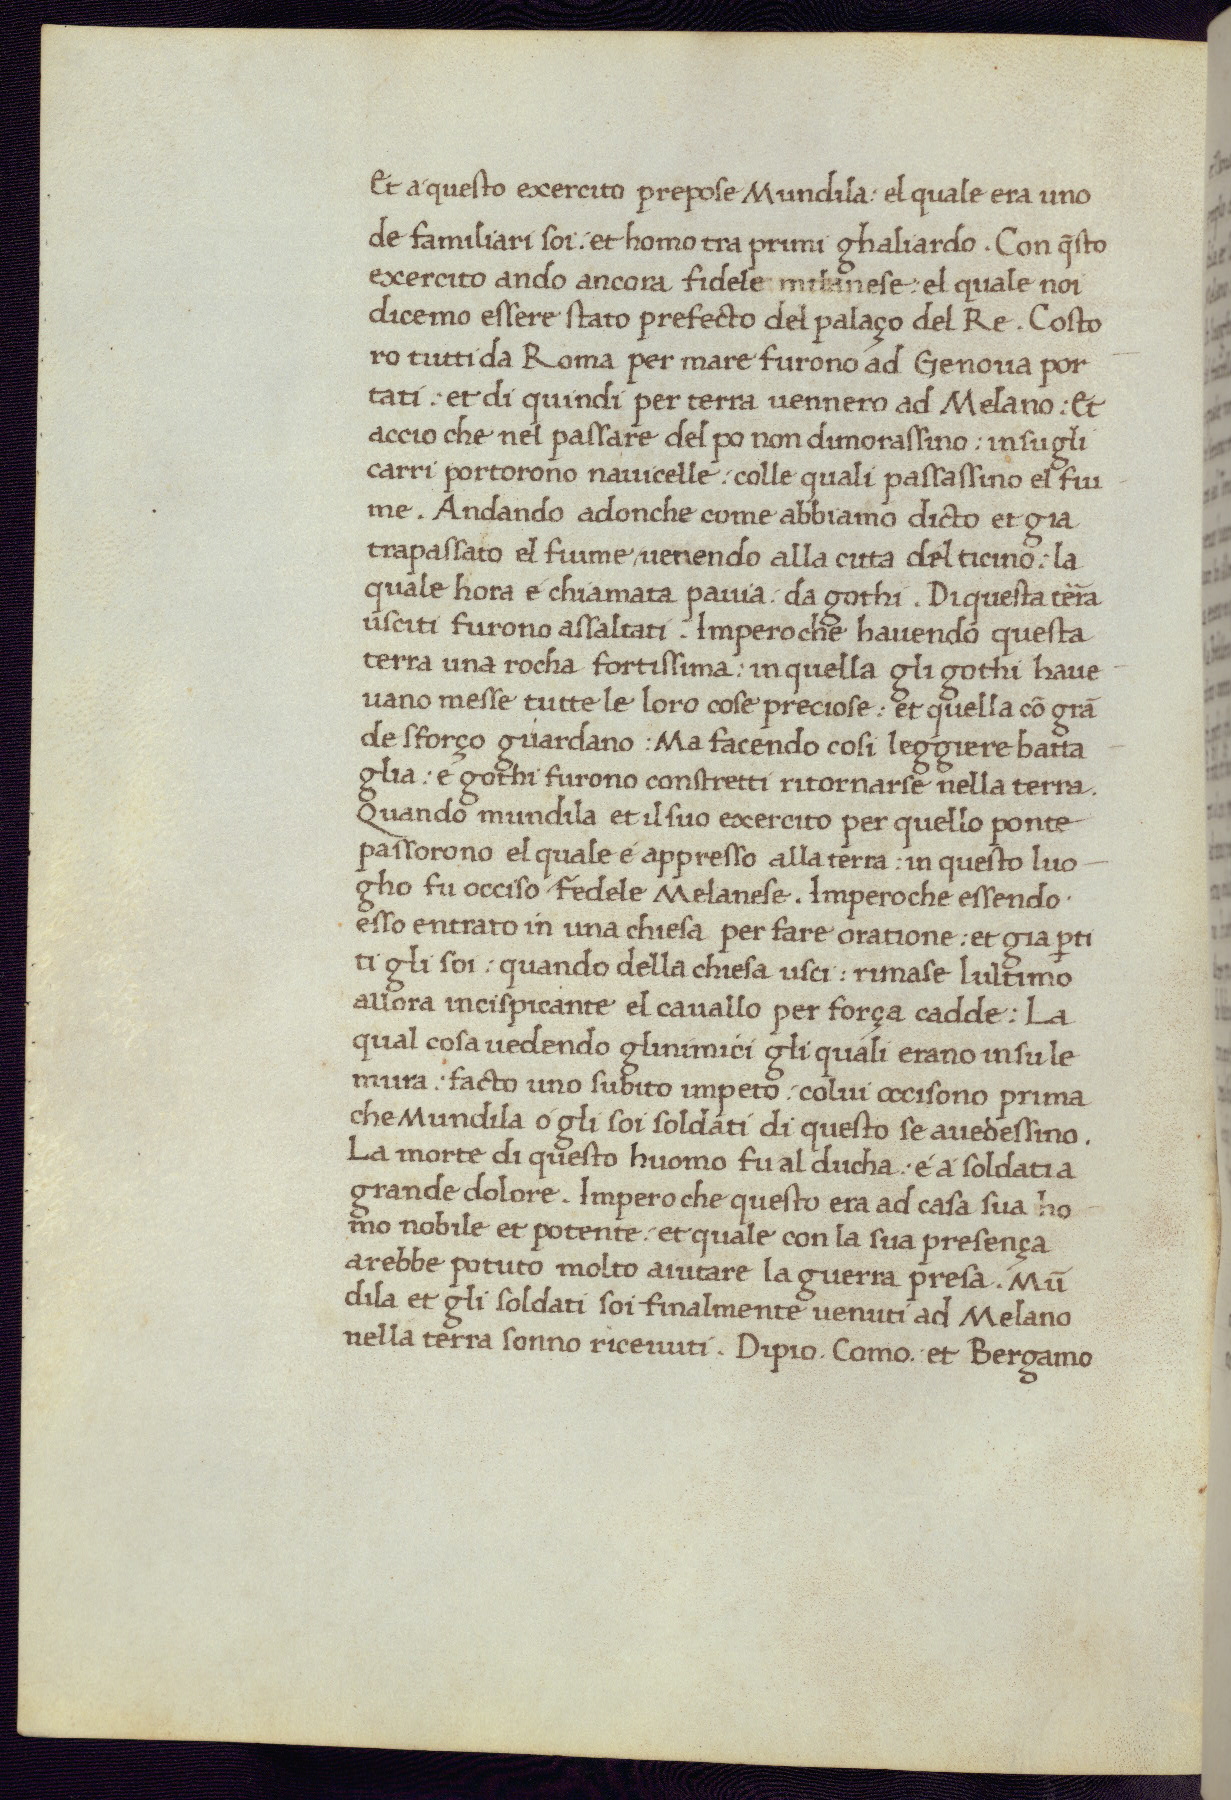 Et a questo exercito prepose Mundila: el quale era uno
de familiari soi: et homo tra primi ghaliardo. Con q̄sto
exercito ando ancora fidele milanese: el quale noi
dicemo essere stato prefecto del palaço del Re. Costo
ro tutti da Roma per mare furono ad Genoua por
tati: et di quindi per terra uennero ad Melano: Et
accio che nel passare del po non dimorassino: in su gli
carri portorono nauicelle: colle quali passassino el fiu
me. Andando adonche come abbiamo dicto et gia
trapassato el fiume, uenendo alla citta del ticino: la
quale hora e chiamata pauia: da gothi. Di questa ter̄a
usciti furono assaltati. Impero che hauendo questa
terra una rocha fortissima: in quella gli gothi haue
uano messe tutte le loro cose preciose: et quella cō grā
de sforço guardano: Ma facendo cosi leggiere batta
glia: e gothi furono constretti ritornarse nella terra.
Quando mundila et il suo exercito per quello ponte
passorono el quale e appresso alla terra: in questo luo
gho fu occiso fedele Melanese. Imperoche essendo
esso entrato in una chiesa per fare oratione: et gia p̄ti
ti gli soi: quando della chiesa usci: rimase lultimo
allora incispicante el cauallo per força cadde: La
qual cosa uedendo glinimici gli quali erano in su le
mura: facto uno subito impeto: colui occisono prima
che Mundila o gli soi soldati di questo se auedessino.
La morte di questo huomo fu al ducha: e a soldati a
grande dolore. Impero che questo era ad casa sua ho
mo nobile et potente: et quale con la sua presença
arebbe potuto molto aiutare la guerra presa. Mū
dila et gli soldati soi finalmente uenuti ad Melano
nella terra sonno riceuuti. Dipio. Como. et Bergamo